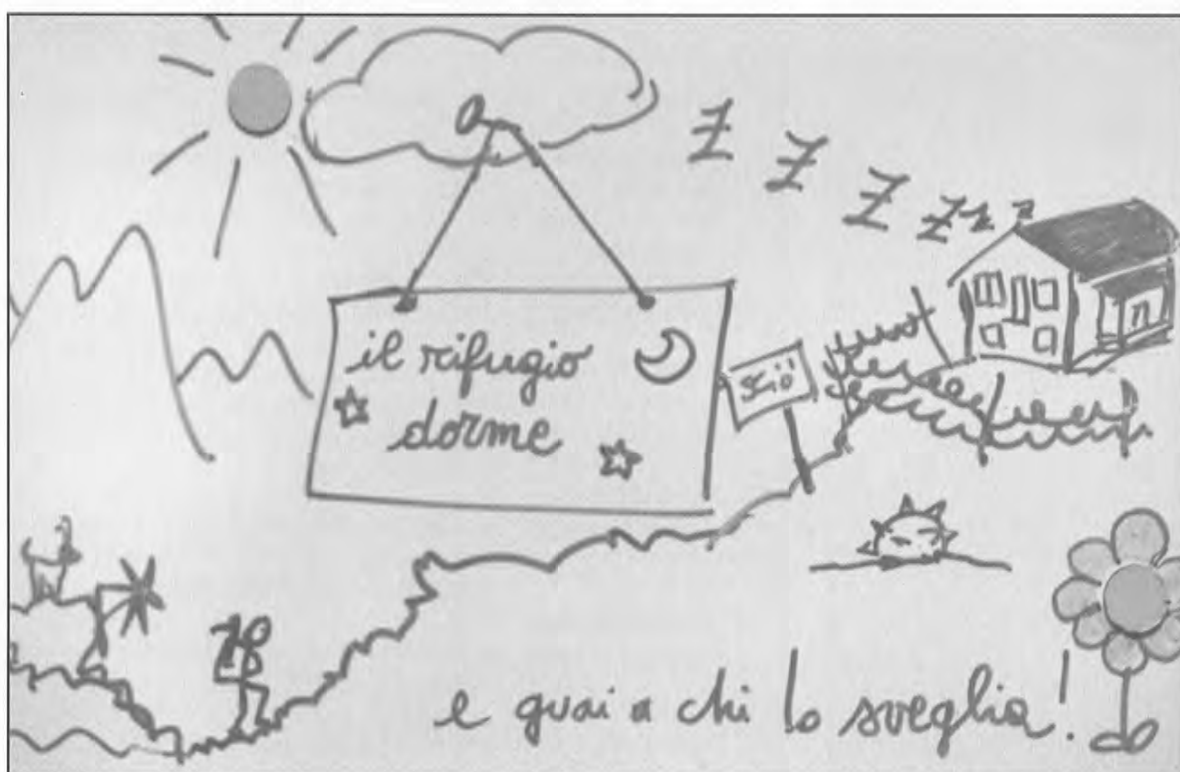 Z Z Z Z z z
il rifugio
dorme
sciò
e guai a chi lo sveglia!